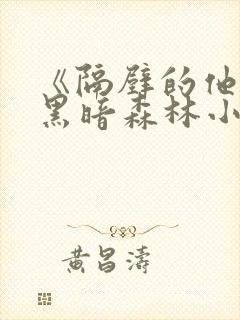 《隔壁的他
黑暗森林小
黄昌濤